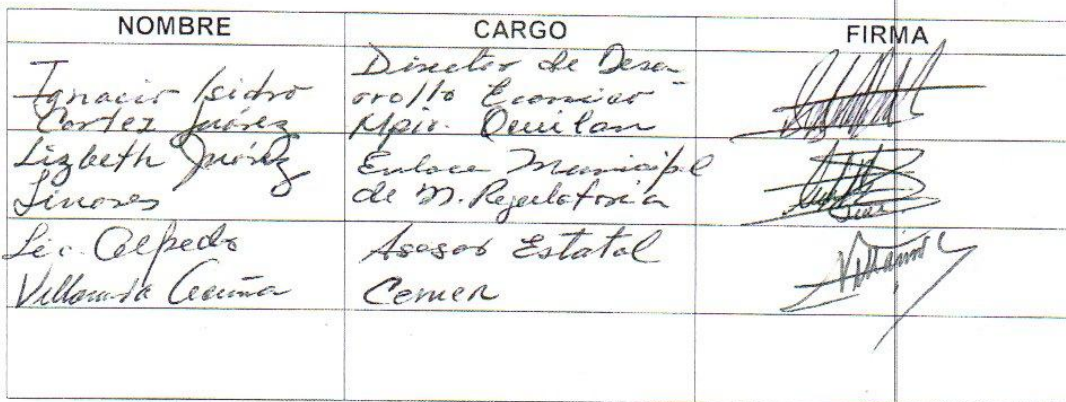 NOMBRE CARGO FIRMA
Ignacio Isidro
Cortez Juárez
Director de Desa-
rrollo Económico
Mpio.
Lizbeth Juárez
Linares
Enlace Municipal
de M. Regulatoria
Lic. Alfredo
Asesor Estatal
Cemer